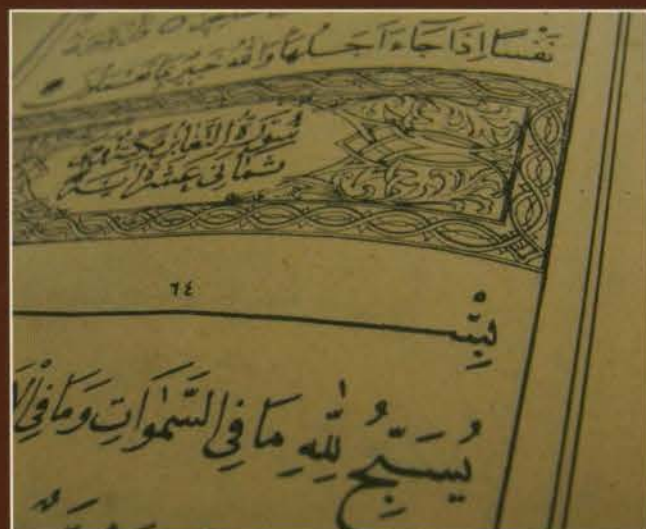 نَفْسًا اِذَا جَاءَ اَجَلُهَا وَاللهُ خَبِيرٌ بِمَا تَعْمَلُونَ
سُورَةُ التَّغَابُنِ
ثَمَانِيَ عَشْرَةَ اٰيَةً
٦٤
بِسْـ
يُسَبِّحُ لِلّٰهِ مَا فِي السَّمٰوَاتِ وَمَا فِي الْاَ